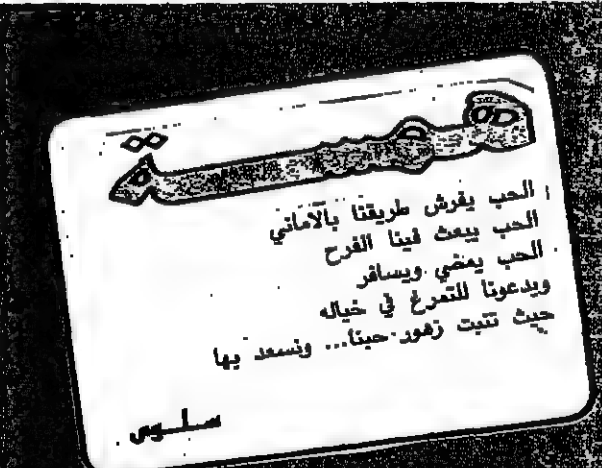 همسة
الحب يفرش طريقنا بالأماني
الحب يبعث فينا الفرح
الحب يمضي ويسافر
ويدعونا للتمرغ في خياله
حيث تنبت زهور حبنا... ونسعد بها
سلوى